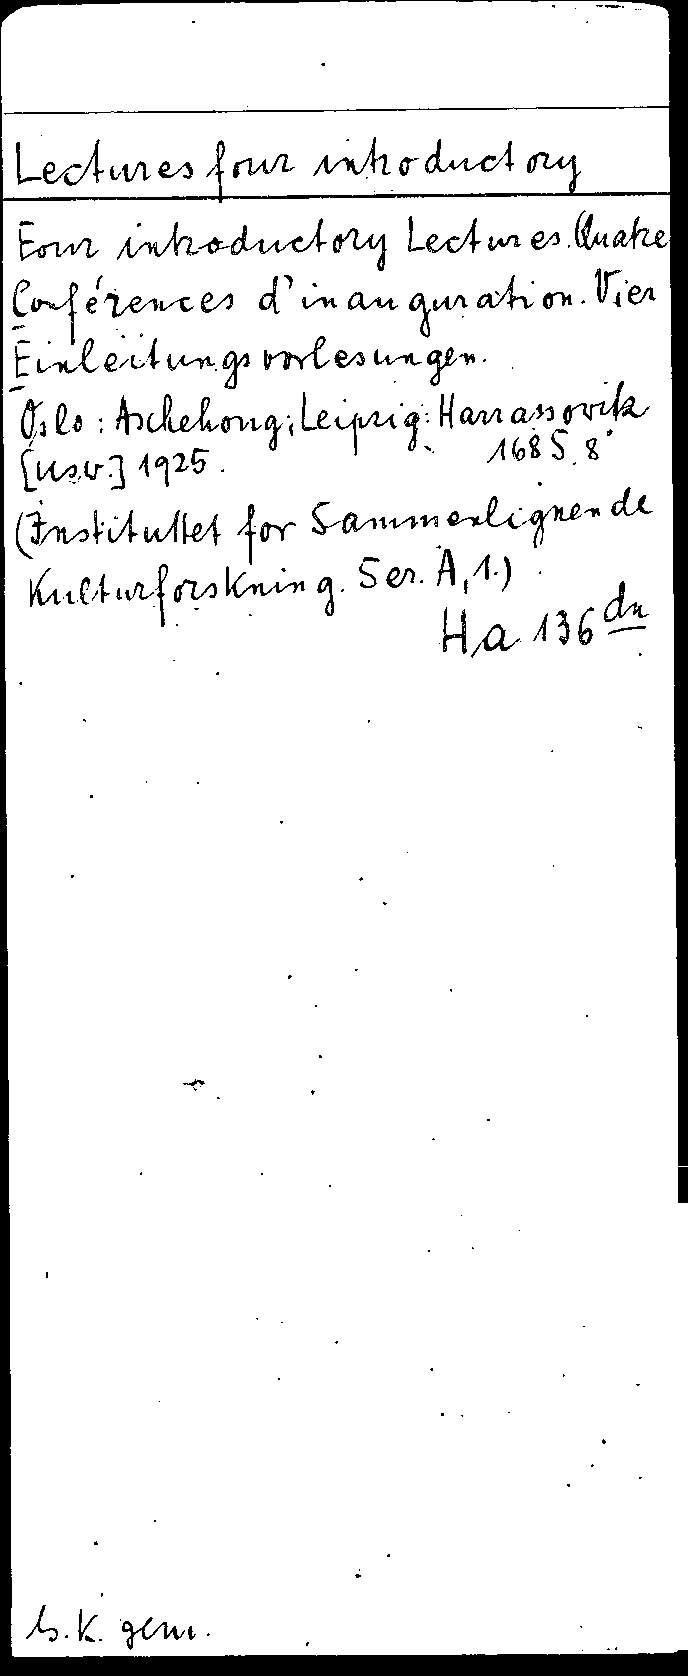 Lectures four introductory
Four introductory Lectures. Quatre
Conférences d'inauguration. Vier
Einleitungsvorlesungen.
Oslo: Aschehoug; Leipzig: Harrassowitz
[usw.] 1925. 168 S. 8°
(Instituttet for Sammenlignende
Kulturforskning. Ser. A, 1.)
Ha 136 dn
K. gem.